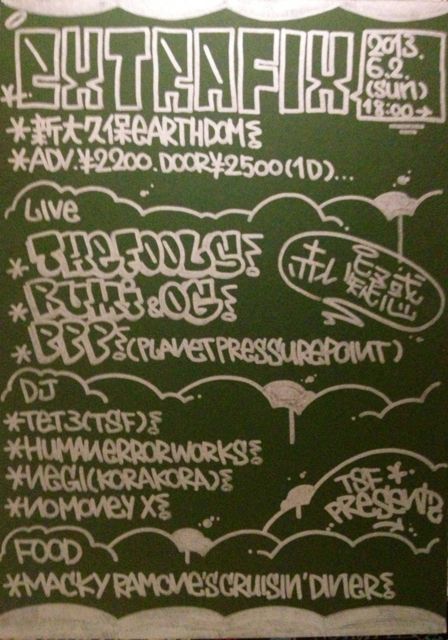 EXTRAFIX
2013.
6.2.
(SUN)
18:00→
*新大久保EARTHDOM
*ADV.¥2200.DOOR¥2500(1D)...
LIVE
*THE FOOLS
*RUMI & OG
*BBB (PLANET PRESSURE POINT)
DJ
*TET3(TSF)
*HUMAN ERROR WORKS
*NEGI(KORAKORA)
*NO MONEY X
TSF*
PRESENT
FOOD
*MACKY RAMONE'S CRUISIN' DINER